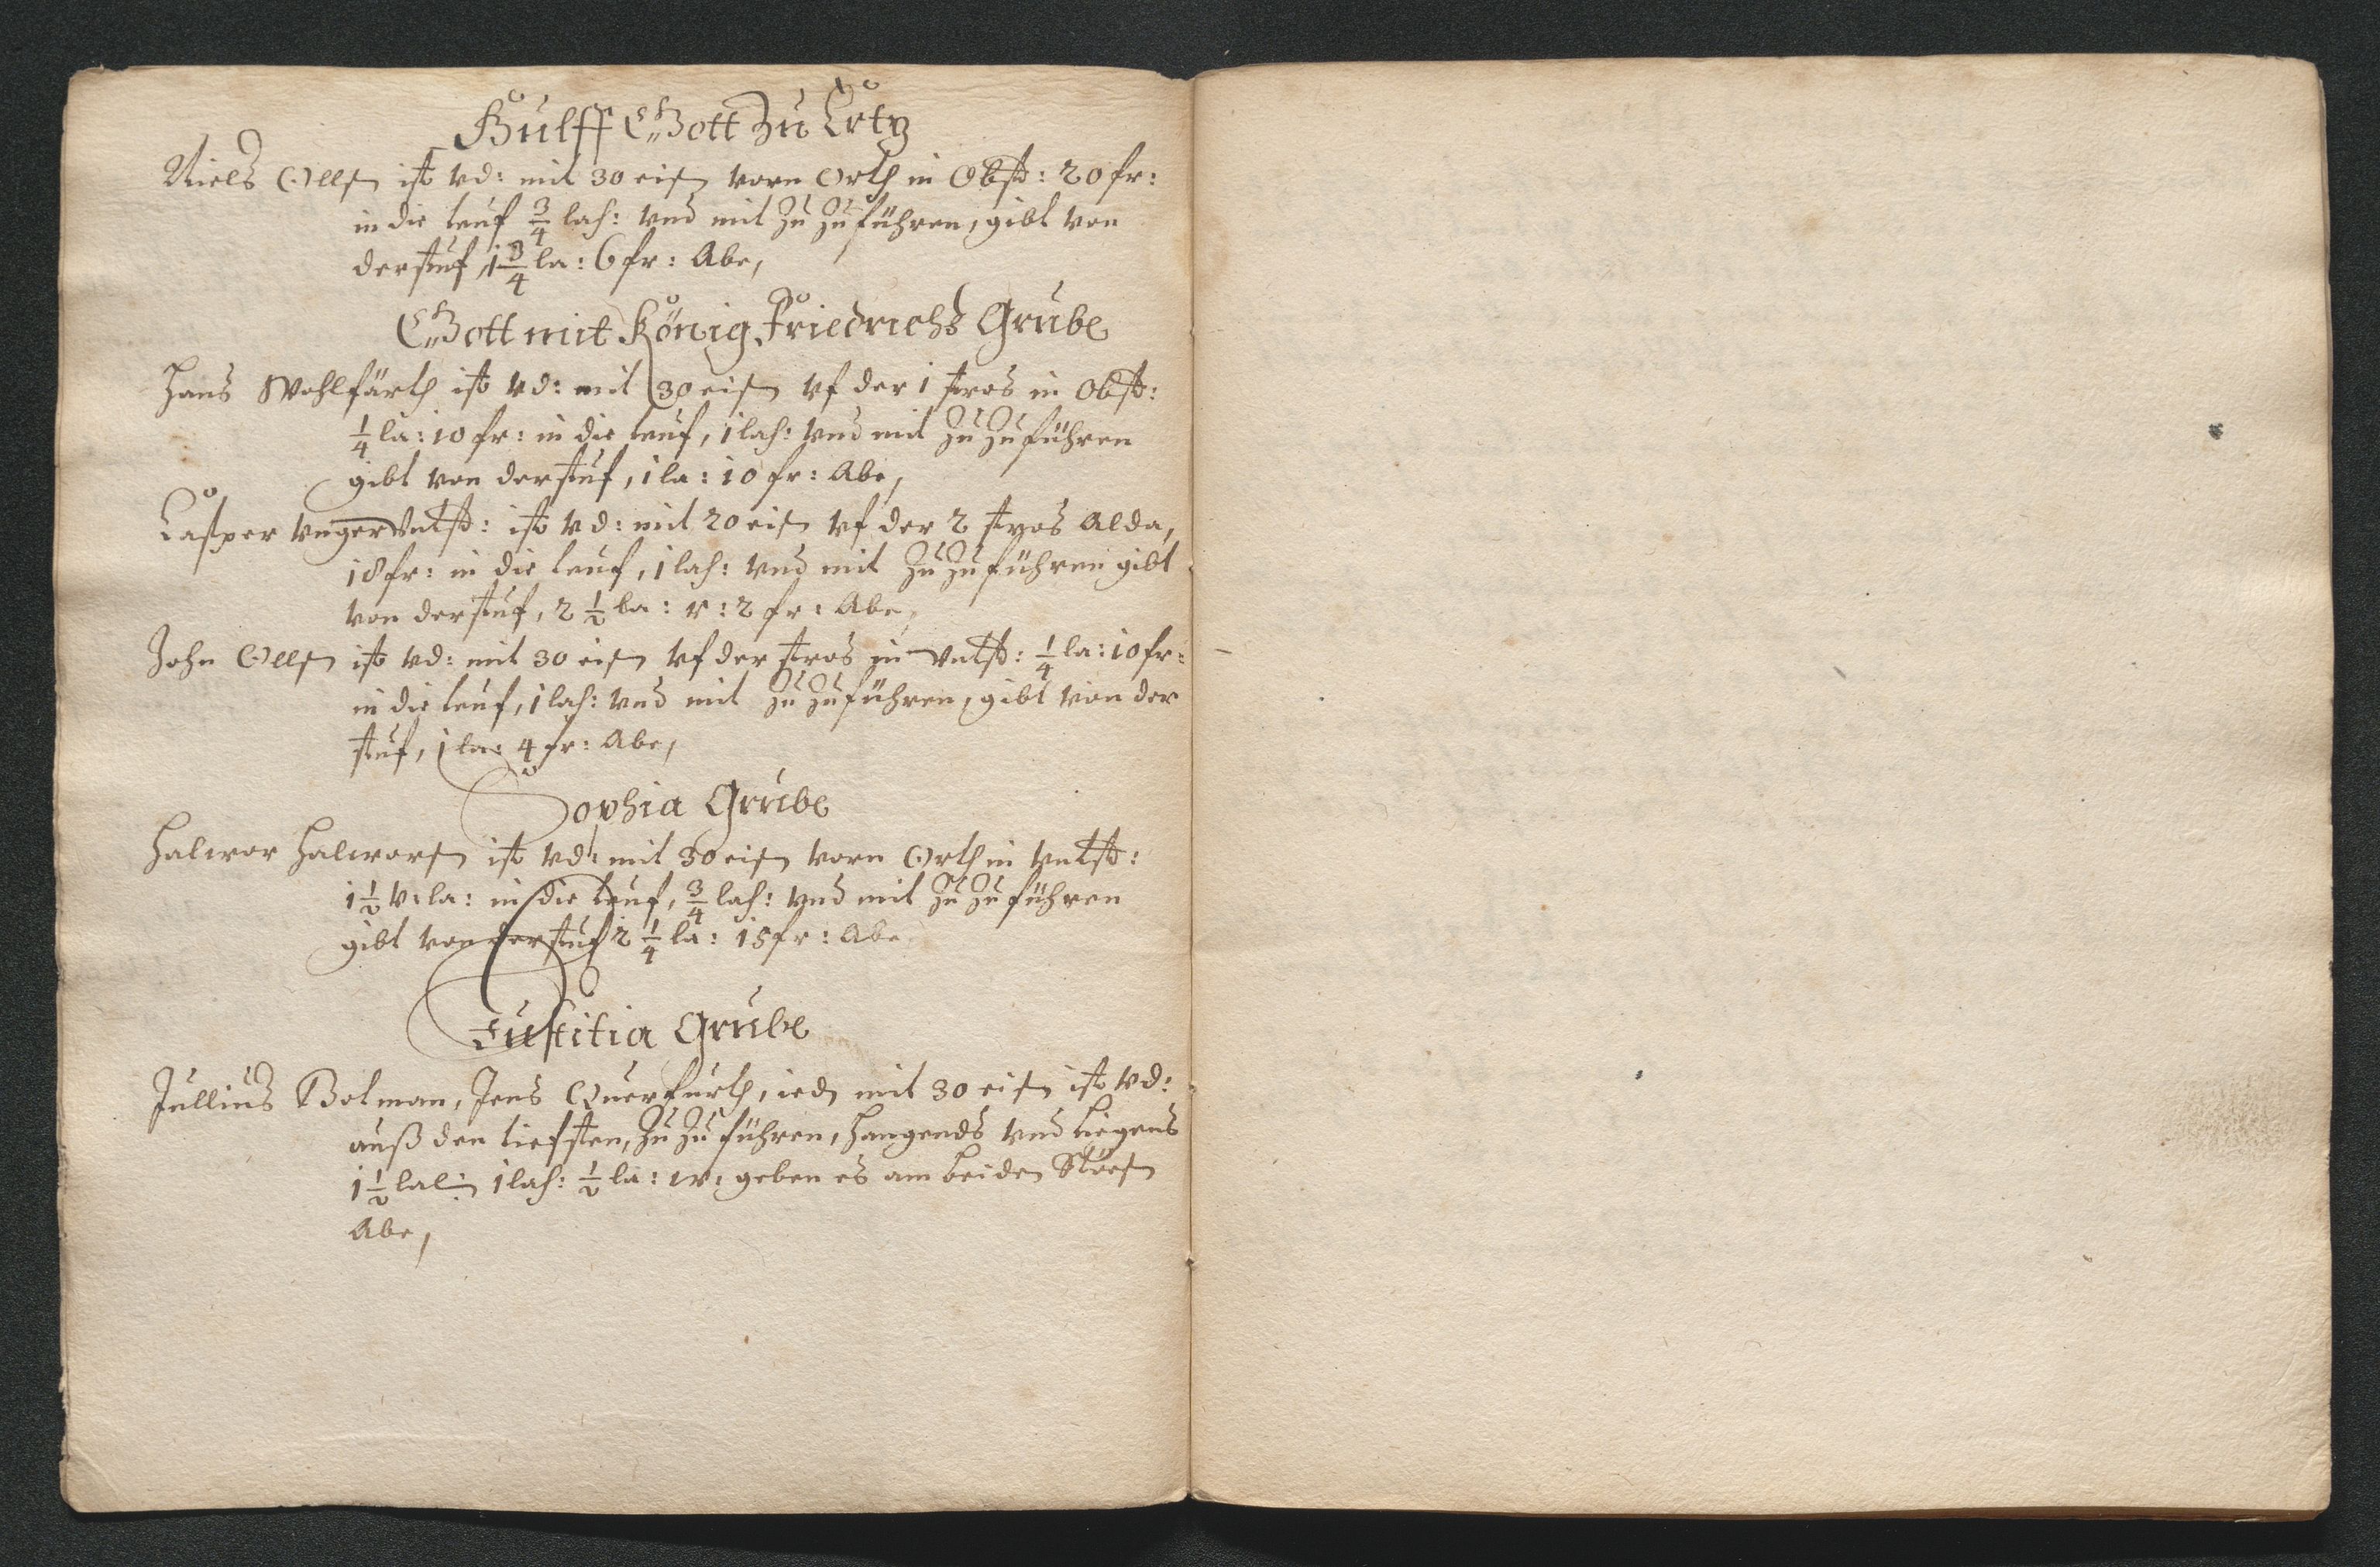 Hülff Gott Zu Ertz
Niels Ollsen ist vd: mit 30 eisen vorn Orth in Obst: 20 fr:
in die teuf 3/4 lah: vnd mit zu zuführen, gibt von
der stuf, 1 3/4 la: 6 fr: Abe,
Gott mit König Friedrichs Grube
Hans Wohlfarth ist vd: mit 30 eisen vf der 1 stros in Obst:
1/4 la: 10 fr: in die teuf, 1 lah: vnd mit zu zuführen
gibt von der stuf, 1 la: 10 fr: Abe,
Casper vnger ist vd: mit 20 eisen vf der 2 stros Alda,
18 fr: in die teuf, 1 lah: vnd mit zu zuführen gibt
von der stuf, 2 1/2 la: v: 2 fr: Abe,
John Ollsen ist vd: mit 30 eisen vf der stros in vntst: 1/4 la: 10 fr:
in die teuf, 1 lah: vnd mit zu zuführen, gibt von der
stuf, 1 la: 4 fr: Abe,
Sophia Grube
Halwor Halworsen ist vd: mit 30 eisen vorn Orth in vntst:
1 1/2 v: la: in die teuf, 3/4 lah: vnd mit zu zuführen
gibt von der stuf 2 1/4 la: 15 fr: Abe
Justitia Grube
Jullius Botman, Jens Querfurth, ied mit 30 eisen ist vd:
auß den tiefsten, zu zu führen, hangends vnd liegens
1 1/2 1 lah: 1/2 la: w: geben es am beiden
Abe,